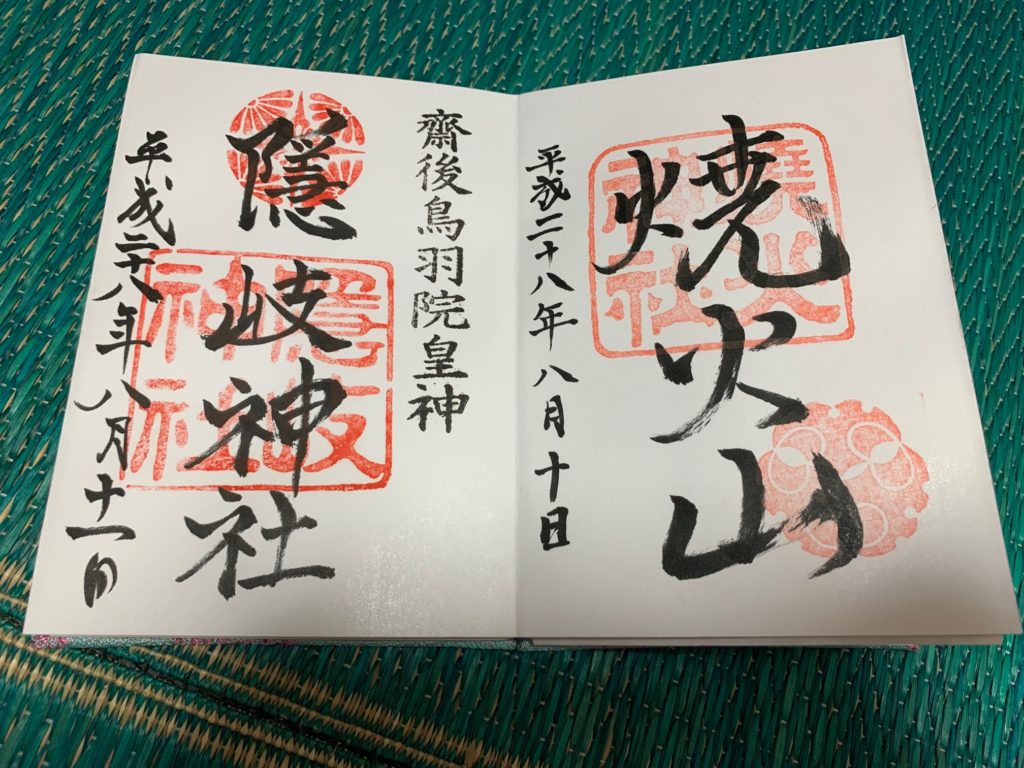 焼火山
平成二十八年八月十日
齋後鳥羽院皇神
隠岐神社
平成二十八年八月十一日
焼火神社
隠岐神社